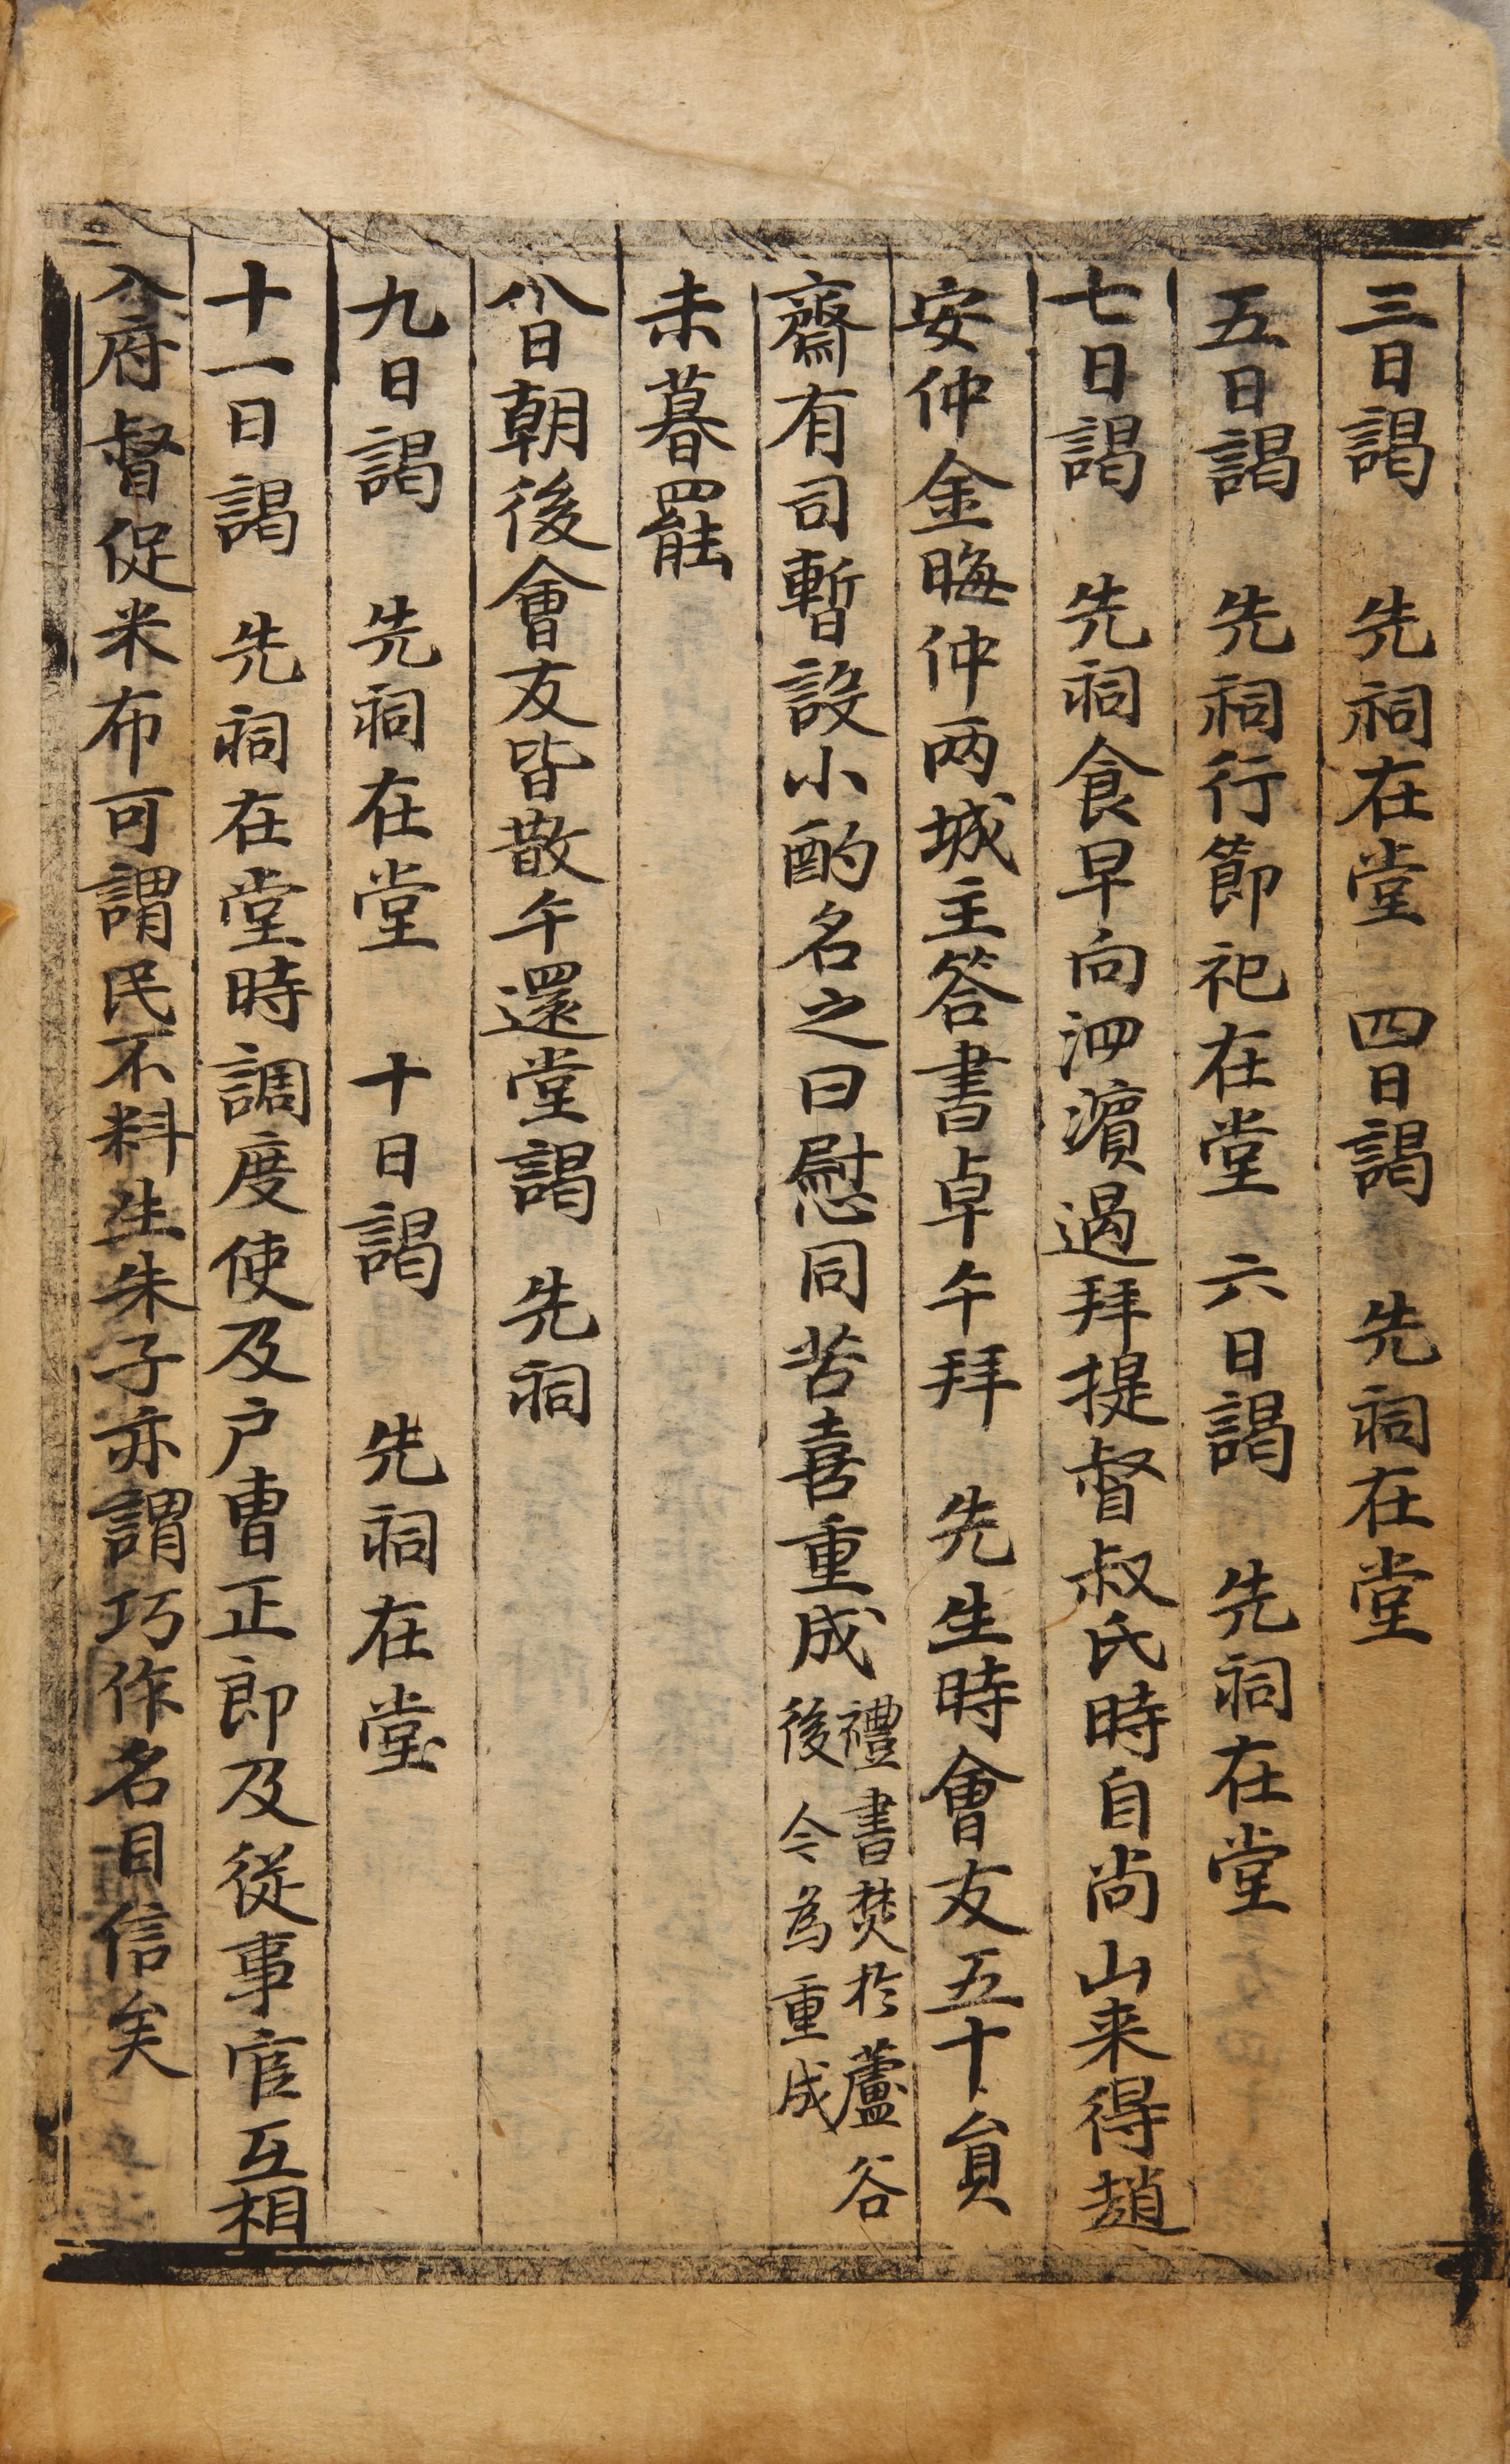 三日謁　先祠在堂　四日謁　先祠在堂
五日謁　先祠行節祀在堂　六日謁　先祠在堂
七日謁　先祠食早向泗濵過拜提督叔氏時自尙山来得趙
安仲金晦仲两城主答書卓午拜　先生時會友五十員
齋有司暫設小酌名之曰慰同苦喜重成
禮書焚於蘆谷
後今為重成
未暮罷
八日朝後會友皆散午還堂謁　先祠
九日謁　先祠在堂　十日謁　先祠在堂
十一日謁　先祠在堂時調度使及戶曺正郎及從事官互相
入府督促米布可謂民不料生朱子亦謂巧作名目信矣